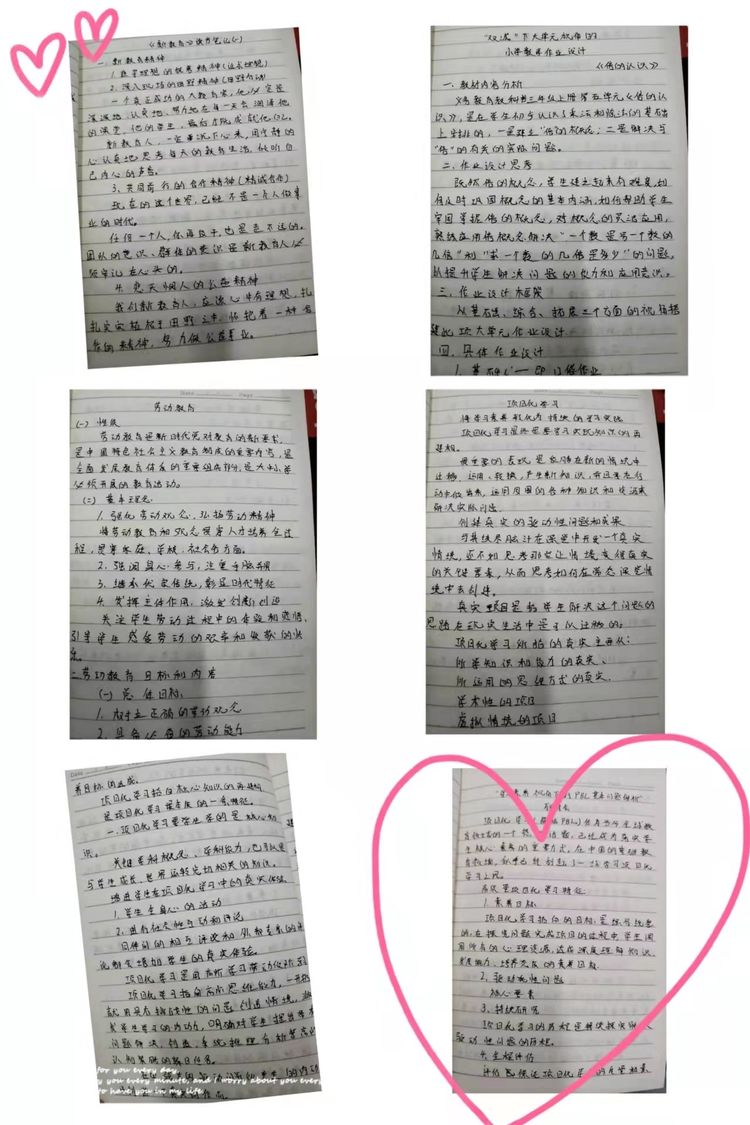 《新教育》读书笔记(一)
一、新教育精神
1. 执着理想的
2. 深入现场的田野精神(田野行动)
一个真正成功的大教育家,他必定是
深深地、认真地、努力地在每一天去润泽他
的课堂,他的学生,最后才能成就他自己。
新教育人,一定要沉下心来,用宁静的
心认真地思考每天的教育生活,倾听自
己内心的声音。
3. 共同前行的合作精神(精诚合作)
现在的这个世界,已经不是一个人做事
业的时代。
任何一个人,你再能干,也是走不远的。
团队的意识、群体的意识是新教育人必
须牢记在心头的。
4. 悲天悯人的公益精神
我们新教育人,应该心中有理想,扎
扎实实植根于田野之中,怀抱着一种合
作的精神,努力做公益事业。
"双减"下大单元视角的
小学数学作业设计
《倍的认识》
一、教材内容分析
义务教育教科书三年级上册第五单元《倍的认
识》,是在学生初步认识了乘法和除法的基础
上安排的,一是建立"倍"的概念;二是解决与
"倍"的有关的实际问题。
二、作业设计思考
既然倍的概念,学生建立起来有难度,如
何及时巩固概念的基本内涵,如何帮助学生
牢固掌握倍的概念,对概念的灵活应用,
熟练应用倍概念解决"一个数是另一个数的
几倍"和"求一个数的几倍是多少"的问题,
以提升学生解决问题的能力和应用意识。
三、作业设计框架
从基础、综合、拓展三个方面的视角搭
建此项大单元作业设计。
四、具体作业设计
1. 基础
劳动教育
(一) 性质
劳动教育是新时代党对教育的新要求,
是中国特色社会主义教育制度的重要内容,是
全面发展教育体系的重要组成部分,是大中小学
必须开展的教育活动。
(二) 基本理念
1. 强化劳动观念,弘扬劳动精神
将劳动教育和
程,贯穿家庭、学校、社会各方面。
2. 强调身心参与,注重手脑并用
3. 继承优良传统,彰显时代特征
4. 发挥主体作用,激发创新创造
关注学生劳动过程中的体验和感悟,
引导学生感受劳动的欢乐和收获的快
乐
二、劳动教育目标和内容
(一) 总体目标:
1. 树立正确的劳动观念
2. 具备必备的劳动能力
项目化学习
将学习素养转化为持续的学习实践
项目化学习最终是要学习实现知识的再
建构。
最重要的表现是能够在新的情境中
迁移、运用、转换,产生新知识,并且要在行
动中做出来,运用周围的各种知识和资源来
解决实际问题。
创建真实的驱动性问题和成果
与其绞尽脑汁在课堂中开发一个真实
情境,还不如思考那些让情境变得真实
的关键要素,从而思考如何在常态课堂情
境中去创建。
真实项目是指学生解决这个问题的
思路在现实生活中是可以迁移的。
项目化学习所指的真实主要从:
所学知识和能力的真实、
所运用的思维方式的真实。
学术性的项目
虚拟情境的项目
养目标的达成。
项目化学习指向核心知识的再建构
是项目化学习最本质的一条特征。
一、项目化学习要学生学的是核心知
识。
关键学科概念、学科能力,也可以是
与学生成长、世界运转密切相关的知识。
增进学生在项目化学习中的真实体验
1. 学生全身心的活动
2. 进行社会性互动和评论
同伴间的相互评论和外部专家的评
论都会增加学生的真实体验。
项目化学习是用高阶学习带动低阶
项目化学习指向高阶思维能力,一开始
就用具有挑战性的问题创造情境,激
发学生学习的内动力,明确对学生提出
问题解决、创造、系统推理分析等高阶
认知策略的项目任务。
for you every day
you every minute, and I worry about you every
to have you in my life.
"
项目化学习(简称PBL)
学习上况。
高质量项目化学习特征:
1. 素养目标
项目化学习指向的目标,是
2. 驱动性问题
核心要素
3. 持续研究
项目化学习的历程是
动性问题的历程。
4. 全程评估